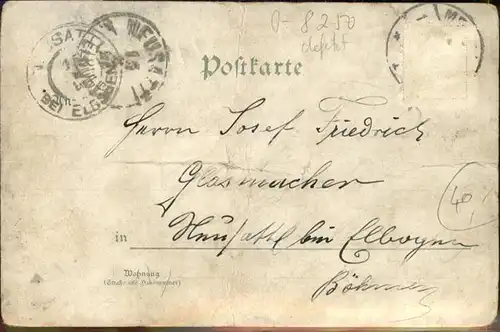 0- 8250
defekt
NEUSATTL
BEI ELBOGEN
NEUSATTL
ME
Postkarte
Herrn Josef Friedrich
Glasmacher
40,
in Neusattl bei Elbogen
Wohnung
(Straße und Hausnummer)
Böhmen